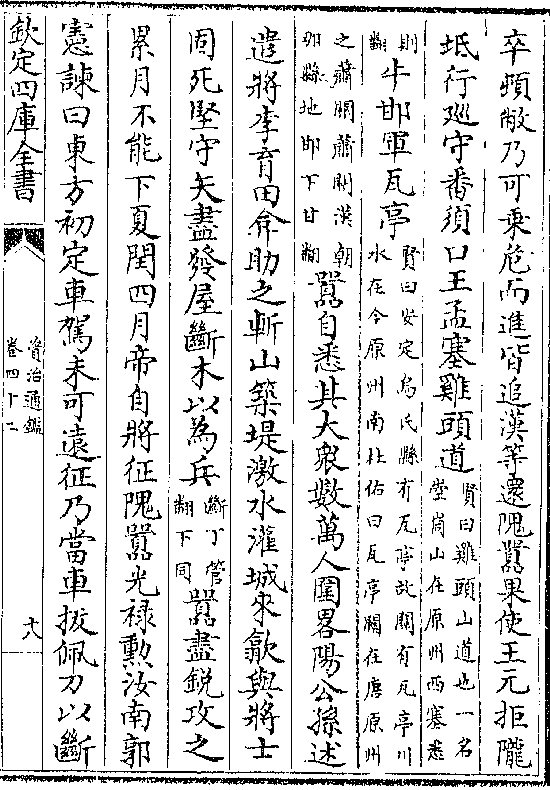 卒頓敝乃可乗危而進皆追漢等還隗囂果使王元拒隴
坻行廵守番須口王孟塞雞頭道賢曰雞頭山道也一名
崆峒山在原州西塞悉
則
翻牛邯軍瓦亭賢曰安定烏氏縣有瓦亭故關有瓦亭川
水在今原州南杜佑曰瓦亭關在唐原州
之蕭關蕭關漢朝
那縣地邯下甘翻囂自悉其大衆數萬人圍畧陽公孫述
遣將李育田弇助之斬山築堤激水灌城來歙與將士
固死堅守矢盡發屋斷木以為兵斷丁管
翻下同囂盡鋭攻之
累月不能下夏閏四月帝自將征隗囂光禄勲汝南郭
憲諫曰東方初定車駕未可遠征乃當車拔佩刀以斷
欽定四庫全書
資治通鑑
卷四十二
十八